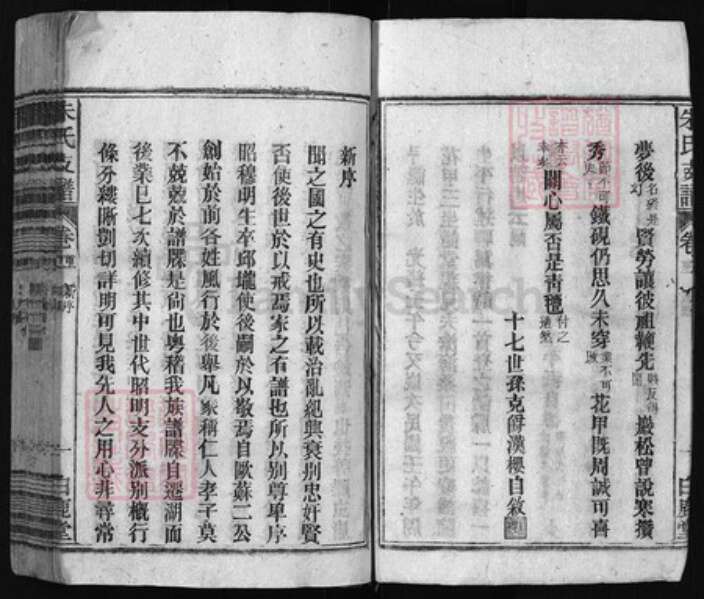 夢後名琛與賢勞讓彼祖鞭先巖松曾說寒攢
秀節不可鐵硯仍思久未穿業不可花甲既周誠可喜
關心屬否是青氊付之
十七世孫克爵漢樓自敘
朱氏支譜
白鹿堂
新序
聞之國之有史也所以載治亂紀興衰別忠奸賢
否使後世於以戒焉家之有譜也所以別尊卑序
昭穆明生卒邱壠使後嗣於以敬焉自歐蘇二公
創始於前各姓風行於後舉凡家稱仁人孝子莫
不兢兢於譜牒是尚也粵稽我族譜牒自遷湖而
後業已七次續修其中世代昭明支分派別概行
條分縷晰剴切詳明可見我先人之用心非尋常
朱氏支譜
卷
新序
一
白鹿堂
FamilySearch